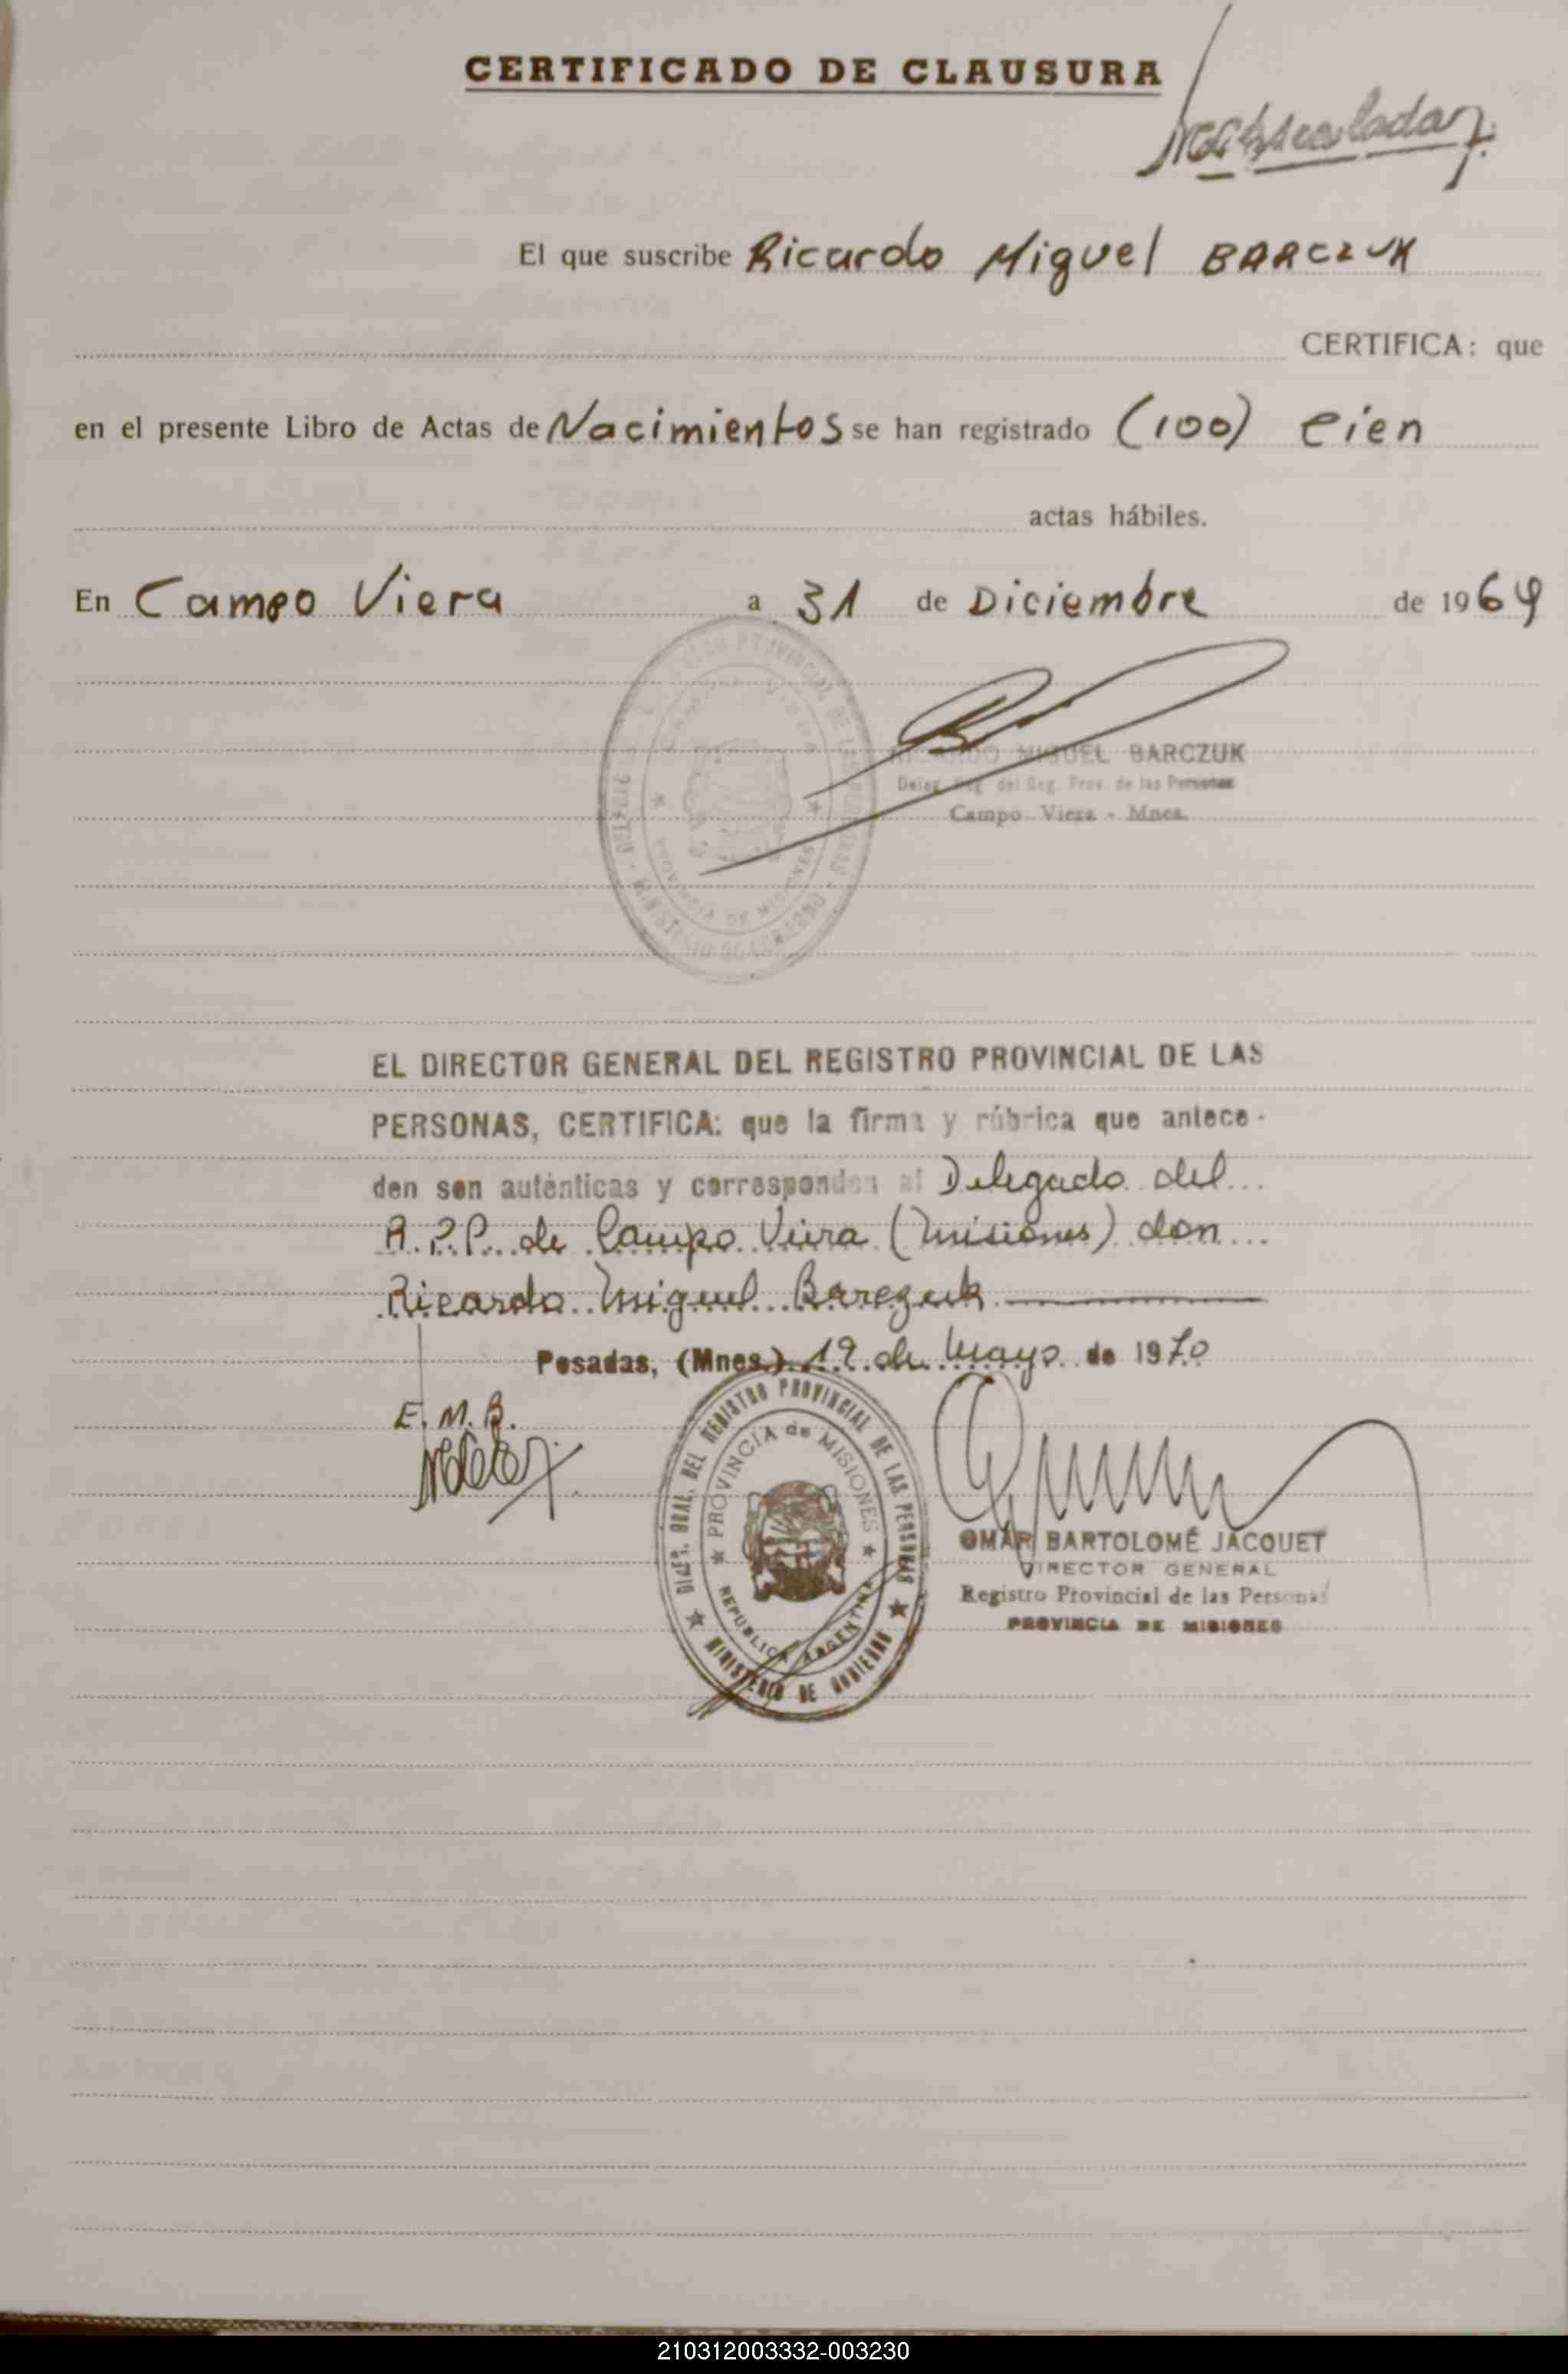 CERTIFICADO DE CLAUSURA
El que suscribe Ricardo Miguel BARCZUK
CERTIFICA: que
en el presente Libro de Actas de Nacimientos se han registrado (100) cien
actas hábiles.
En Campo Viera a 31 de Diciembre de 1969
RICARDO MIGUEL BARCZUK
Deleg. del Reg. Prov. de las Personas
Campo Viera - Mnes.
EL DIRECTOR GENERAL DEL REGISTRO PROVINCIAL DE LAS
PERSONAS, CERTIFICA: que la firma y rúbrica que antece-
den son auténticas y corresponden al Delegado del
R.P.P. de Campo Viera (Misiones) don
Ricardo Miguel Barczuk
Posadas, (Mnes.) 19 de Mayo de 1970
E.M.B.
DIRC. GRAL. DEL REGISTRO PROVINCIAL DE LAS PERSONAS
PROVINCIA de MISIONES
REPUBLICA ARGENTINA
MINISTERIO DE GOBIERNO
OMAR BARTOLOMÉ JACQUET
DIRECTOR GENERAL
Registro Provincial de las Personas
PROVINCIA DE MISIONES
210312003332-003230